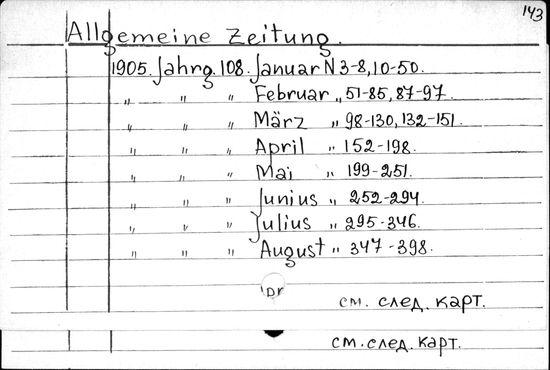 143
Allgemeine Zeitung.
1905. Jahrg. 108. Januar N 3-8, 10-50.
„ „ „ Februar „ 51-85, 87-97.
„ „ „ März „ 98-130, 132-151.
„ „ „ April „ 152-198.
„ „ „ Mai „ 199-251.
„ „ „ Junius „ 252-294.
„ „ „ Julius „ 295-346.
„ „ „ August „ 347-398.
DR
см. след. карт.
см. след. карт.